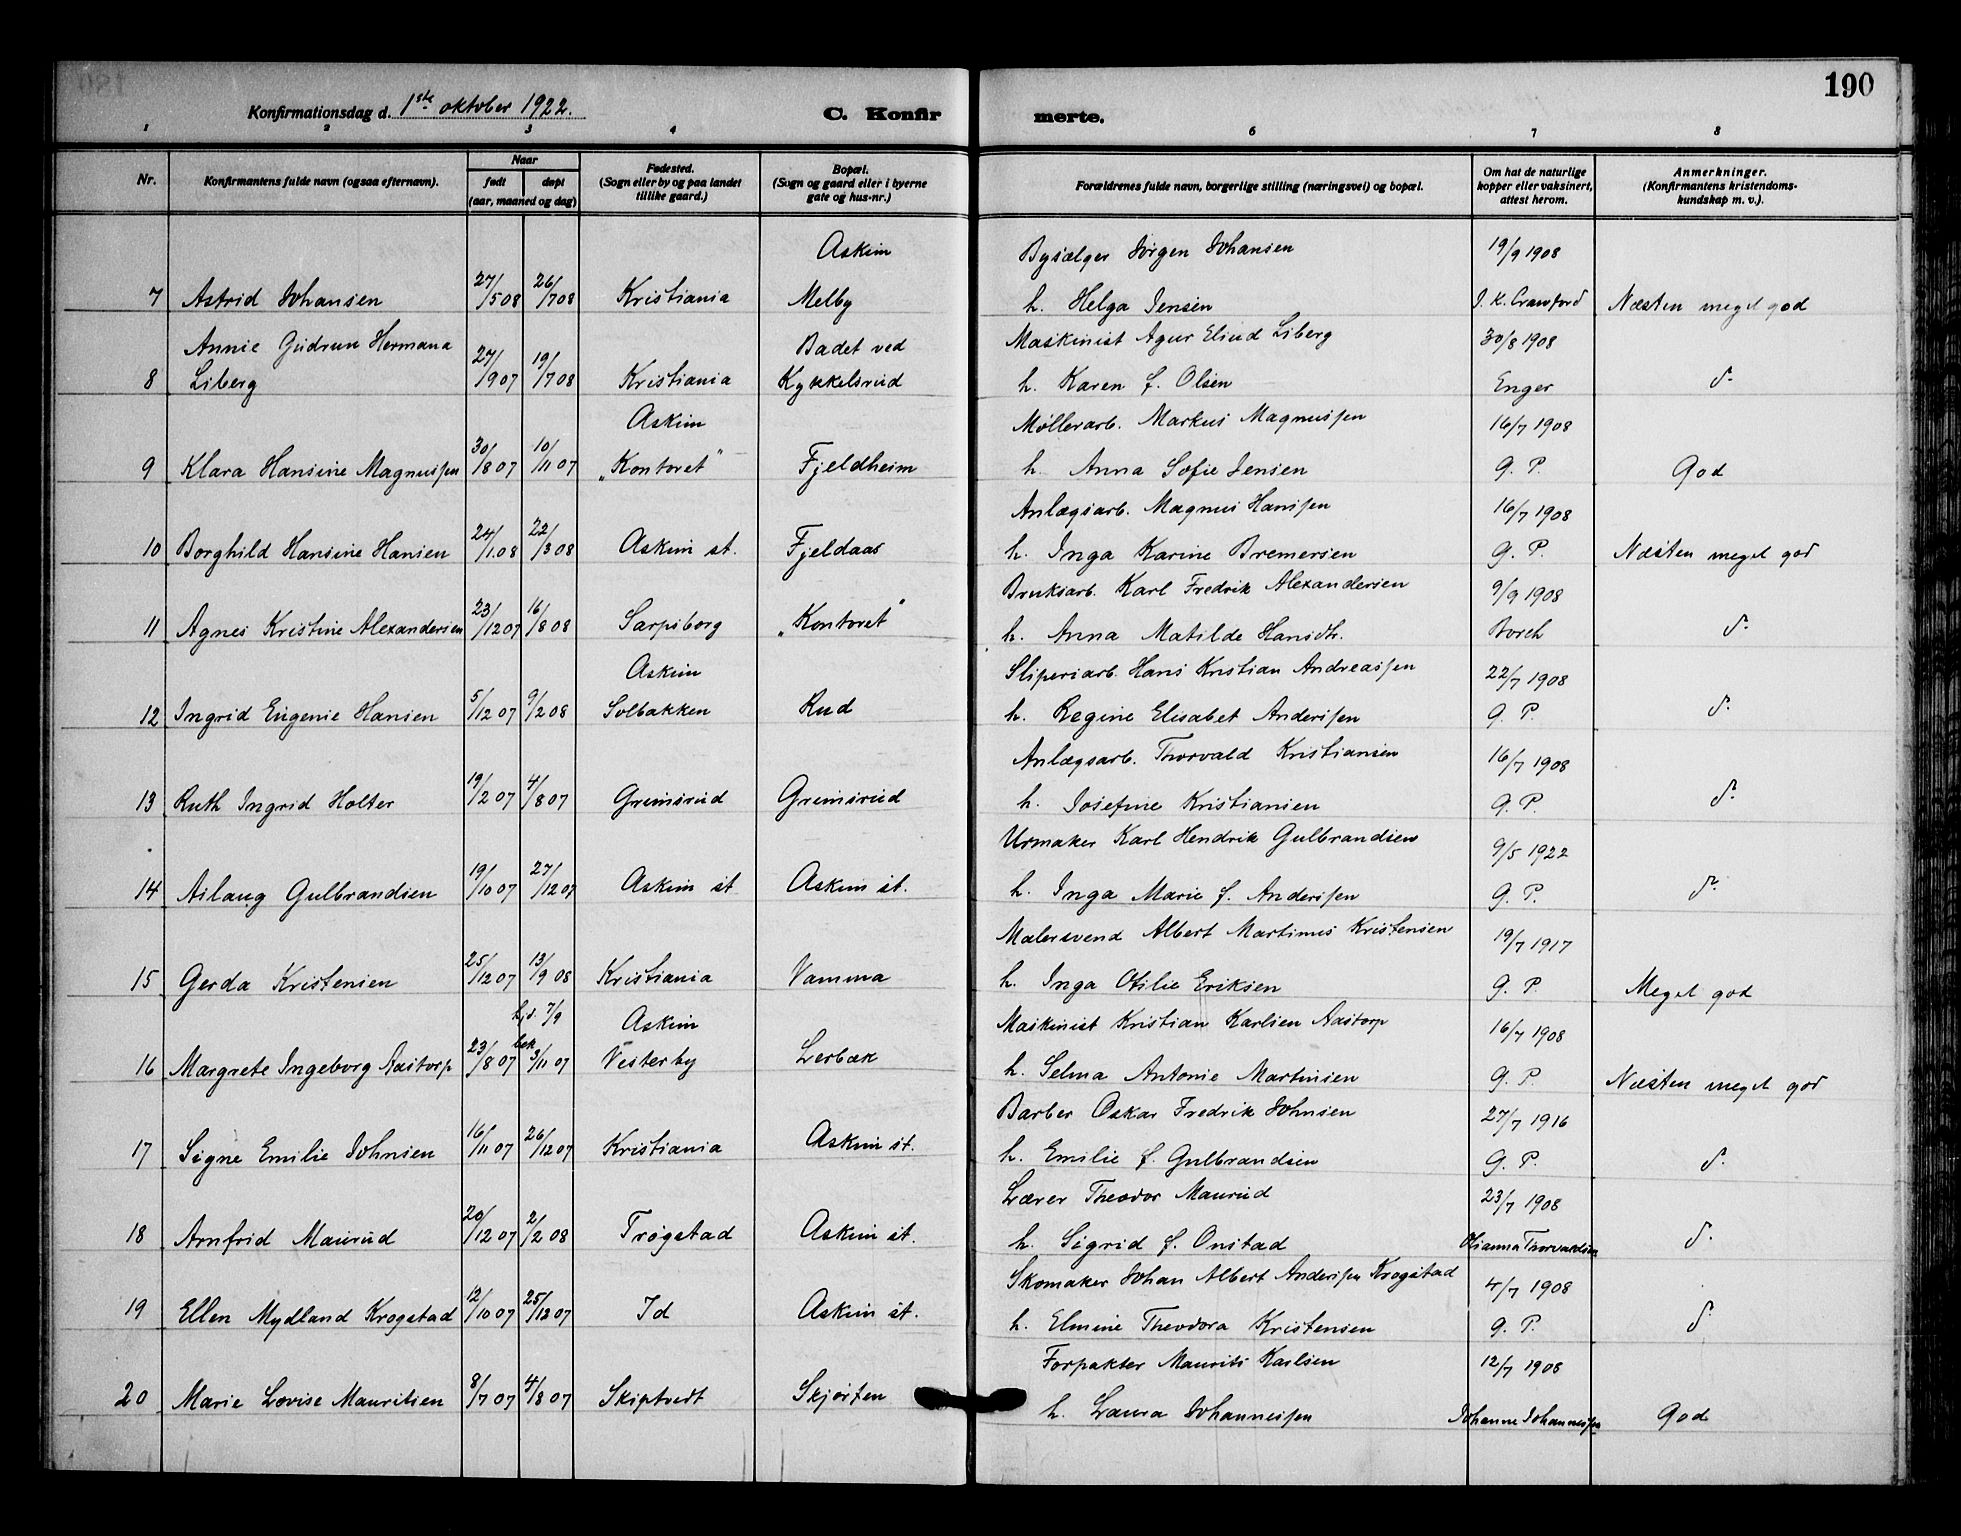 190
Konfirmationsdag d. 1ste oktober 1922.
C. Konfirmerte.
1 2 3 4 6 7 8
Nr.
Konfirmantens fulde navn (ogsaa efternavn).
Naar
født døpt
(aar, maaned og dag)
Fødested.
(Sogn eller by og paa landet
tillike gaard.)
Bopæl.
(Sogn og gaard eller i byerne
gate og hus-nr.)
Forældrenes fulde navn, borgerlige stilling (næringsvei) og bopæl.
Om hat de naturlige
kopper eller vaksinert,
attest herom.
Anmerkninger.
(Konfirmantens kristendoms-
kundskap m. v.).
Askim Bysælger Jørgen Johansen 19/9 1908
7 Astrid Johansen 27/5 08 26/7 08 Kristiania Melby h. Helga Jensen J. K. Crawford Næsten meget god
Annie Gudrun Hermana Badet ved Maskinist Agur Eliud Liberg 30/8 1908
8 Liberg 27/9 07 19/7 08 Kristiania Kykkelsrud h. Karen f. Olsen Enger d.
Askim Møllerarb. Markus Magnussen 16/7 1908
9 Klara Hansine Magnussen 30/8 07 10/11 07 „Kontoret" Fjeldheim h. Anna Sofie Jensen G. P. God
Anlægsarb. Magnus Hanssen 16/7 1908
10 Borghild Hansine Hansen 24/1 08 22/3 08 Askim st. Fjeldaas h. Inga Karine Bremersen G. P. Næsten meget god
Bruksarb. Karl Fredrik Alexandersen 9/9 1908
11 Agnes Kristine Alexandersen 23/12 07 16/8 08 Sarpsborg „Kontoret" h. Anna Matilde Hansdtr. Borch d.
Askim Sliperiarb. Hans Kristian Andreassen 22/7 1908
12 Ingrid Eugenie Hansen 5/12 07 9/2 08 Solbakken Rud h. Regine Elisabet Anderssen G. P. d.
Anlægsarb. Thorvald Kristiansen 16/7 1908
13 Ruth Ingrid Holter 19/2 07 4/8 07 Grimsrud Grimsrud h. Josefine Kristiansen G. P. d.
Urmaker Karl Hendrik Gulbrandsen 9/5 1922
14 Aslaug Gulbrandsen 19/10 07 27/12 07 Askim st Askim st. h. Inga Marie f. Anderssen G. P. d.
Malersvend Albert Martinus Kristensen 19/7 1917
15 Gerda Kristensen 25/12 07 13/9 08 Kristiania Vamma h. Inga Otilie Eriksen G. P. Meget god
hjd. 7/9 Askim Maskinist Kristian Karlsen Aastorp 16/7 1908
16 Margrete Ingeborg Aastorp 23/8 07 bek 3/11 07 Vesterby Lerbæk h. Selma Antonie Martinsen G. P. Næsten meget god
Barber Oskar Fredrik Johnsen 27/7 1916
17 Signe Emilie Johnsen 16/11 07 26/12 07 Kristiania Askim st. h. Emilie f. Gulbrandsen G. P. d.
Lærer Theodor Maurud 23/7 1908
18 Arnfrid Maurud 20/12 07 2/2 08 Trøgstad Askim st. h. Sigrid f. Onstad Thorvaldsen d.
Skomaker Johan Albert Anderssen Krogstad 4/7 1908
19 Ellen Mydland Krogstad 12/10 07 25/12 07 Id Askim st. h. Elmine Theodora Kristensen G. P. d.
Forpakter Maurits Karlsen 12/7 1908
20 Marie Lovise Mauritsen 8/7 07 4/8 07 Skiptvedt Skjørten h. Laura Johannessen Johanne Johannessen God